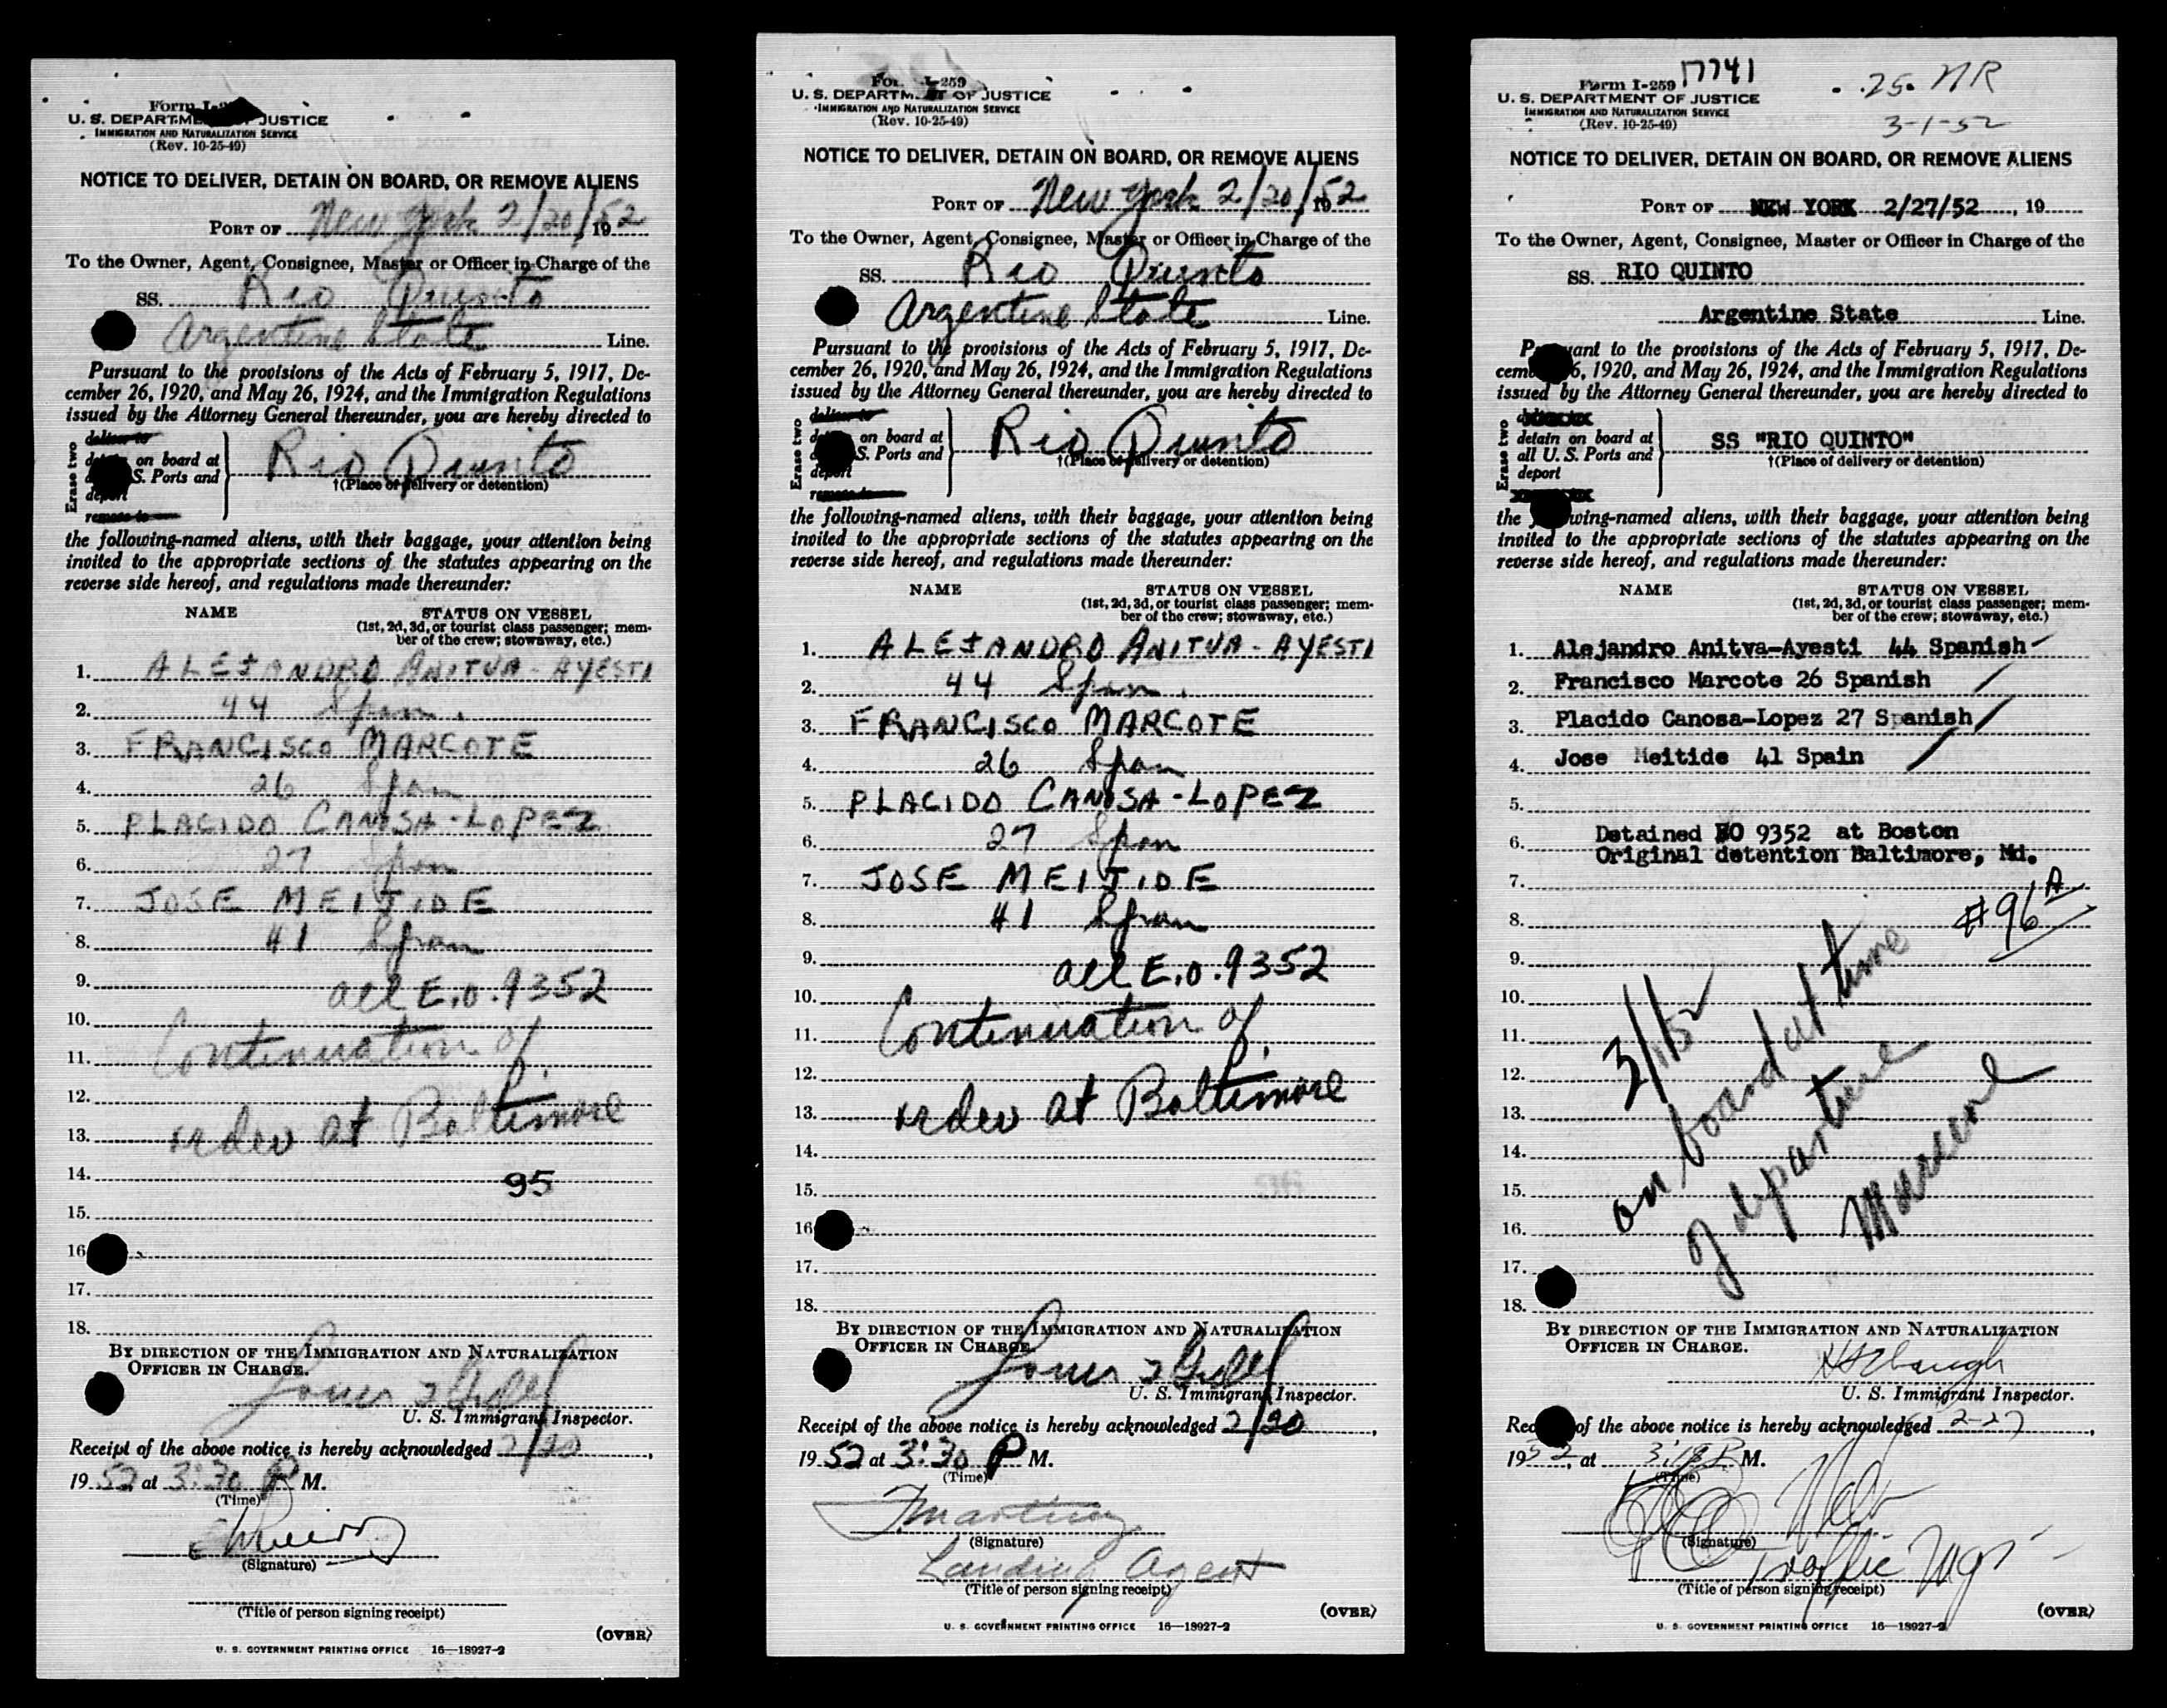 Form I-259
U. S. DEPARTMENT OF JUSTICE
IMMIGRATION AND NATURALIZATION SERVICE
(Rev. 10-25-49)
NOTICE TO DELIVER, DETAIN ON BOARD, OR REMOVE ALIENS
PORT OF New York 2/20/52, 19
To the Owner, Agent, Consignee, Master or Officer in Charge of the
SS. Rio Quinto
Argentine State Line.
Pursuant to the provisions of the Acts of February 5, 1917, De-
cember 26, 1920, and May 26, 1924, and the Immigration Regulations
issued by the Attorney General thereunder, you are hereby directed to
Erase two
deliver to
on board at
S. Ports and
deport
remove to
Rio Quinto
†(Place of delivery or detention)
the following-named aliens, with their baggage, your attention being
invited to the appropriate sections of the statutes appearing on the
reverse side hereof, and regulations made thereunder:
NAME STATUS ON VESSEL
(1st, 2d, 3d, or tourist class passenger; mem-
ber of the crew; stowaway, etc.)
1. ALEJANDRO ANITVA-AYESTI
2. 44 Span.
3. FRANCISCO MARCOTE
4. 26 Span
5. PLACIDO CANOSA-LOPEZ
6. 27 Span
7. JOSE MEITIDE
8. 41 Span
9. all E.O. 9352
10.
11. Continuation of
12.
13. order at Baltimore
14. 95
15.
16.
17.
18.
BY DIRECTION OF THE IMMIGRATION AND NATURALIZATION
OFFICER IN CHARGE.
U. S. Immigrant Inspector.
Receipt of the above notice is hereby acknowledged 2/20,
1952 at 3:30 P M.
(Time)
(Signature)
(Title of person signing receipt)
(OVER)
U. S. GOVERNMENT PRINTING OFFICE 16—18927-2
Form I-259
U. S. DEPARTMENT OF JUSTICE
IMMIGRATION AND NATURALIZATION SERVICE
(Rev. 10-25-49)
NOTICE TO DELIVER, DETAIN ON BOARD, OR REMOVE ALIENS
PORT OF New York 2/20/52, 19
To the Owner, Agent, Consignee, Master or Officer in Charge of the
SS. Rio Quinto
Argentine State Line.
Pursuant to the provisions of the Acts of February 5, 1917, De-
cember 26, 1920, and May 26, 1924, and the Immigration Regulations
issued by the Attorney General thereunder, you are hereby directed to
Erase two
deliver to
on board at
S. Ports and
deport
remove to
Rio Quinto
†(Place of delivery or detention)
the following-named aliens, with their baggage, your attention being
invited to the appropriate sections of the statutes appearing on the
reverse side hereof, and regulations made thereunder:
NAME STATUS ON VESSEL
(1st, 2d, 3d, or tourist class passenger; mem-
ber of the crew; stowaway, etc.)
1. ALEJANDRO ANITVA-AYESTI
2. 44 Span.
3. FRANCISCO MARCOTE
4. 26 Span
5. PLACIDO CANOSA-LOPEZ
6. 27 Span
7. JOSE MEITIDE
8. 41 Span
9. all E.O. 9352
10.
11. Continuation of
12.
13. order at Baltimore
14.
15.
16
17.
18.
BY DIRECTION OF THE IMMIGRATION AND NATURALIZATION
OFFICER IN CHARGE.
U. S. Immigrant Inspector.
Receipt of the above notice is hereby acknowledged 2/20,
1952 at 3:30 P M.
(Time)
(Signature)
Landing Agent
(Title of person signing receipt)
(OVER)
U. S. GOVERNMENT PRINTING OFFICE 16—18927-2
17741
25. NR
3-1-52
Form I-259
U. S. DEPARTMENT OF JUSTICE
IMMIGRATION AND NATURALIZATION SERVICE
(Rev. 10-25-49)
NOTICE TO DELIVER, DETAIN ON BOARD, OR REMOVE ALIENS
PORT OF NEW YORK 2/27/52, 19
To the Owner, Agent, Consignee, Master or Officer in Charge of the
SS. RIO QUINTO
Argentine State Line.
Pursuant to the provisions of the Acts of February 5, 1917, De-
cember 26, 1920, and May 26, 1924, and the Immigration Regulations
issued by the Attorney General thereunder, you are hereby directed to
Erase two
detain on board at
all U. S. Ports and
deport
SS "RIO QUINTO"
†(Place of delivery or detention)
the following-named aliens, with their baggage, your attention being
invited to the appropriate sections of the statutes appearing on the
reverse side hereof, and regulations made thereunder:
NAME STATUS ON VESSEL
(1st, 2d, 3d, or tourist class passenger; mem-
ber of the crew; stowaway, etc.)
1. Alejandro Anitva-Ayesti 44 Spanish
2. Francisco Marcote 26 Spanish
3. Placido Canosa-Lopez 27 Spanish
4. Jose Meitide 41 Spain
5.
6. Detained EO 9352 at Boston
Original detention Baltimore, Md.
7.
#96A
8.
9.
10.
11.
12.
13.
14.
15.
16.
17.
18.
3/1/52
on board at time
of departure
BY DIRECTION OF THE IMMIGRATION AND NATURALIZATION
OFFICER IN CHARGE.
U. S. Immigrant Inspector.
Receipt of the above notice is hereby acknowledged 2-27,
1952, at 3:18 P. M.
(Time)
(Signature)
Traffic Mgr
(Title of person signing receipt)
(OVER)
U. S. GOVERNMENT PRINTING OFFICE 16—18927-2